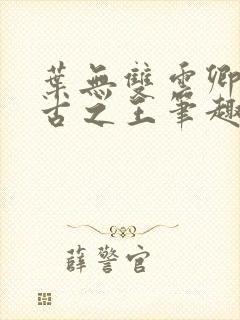 葉無雙雲卿
古之王筆趣
薛警官